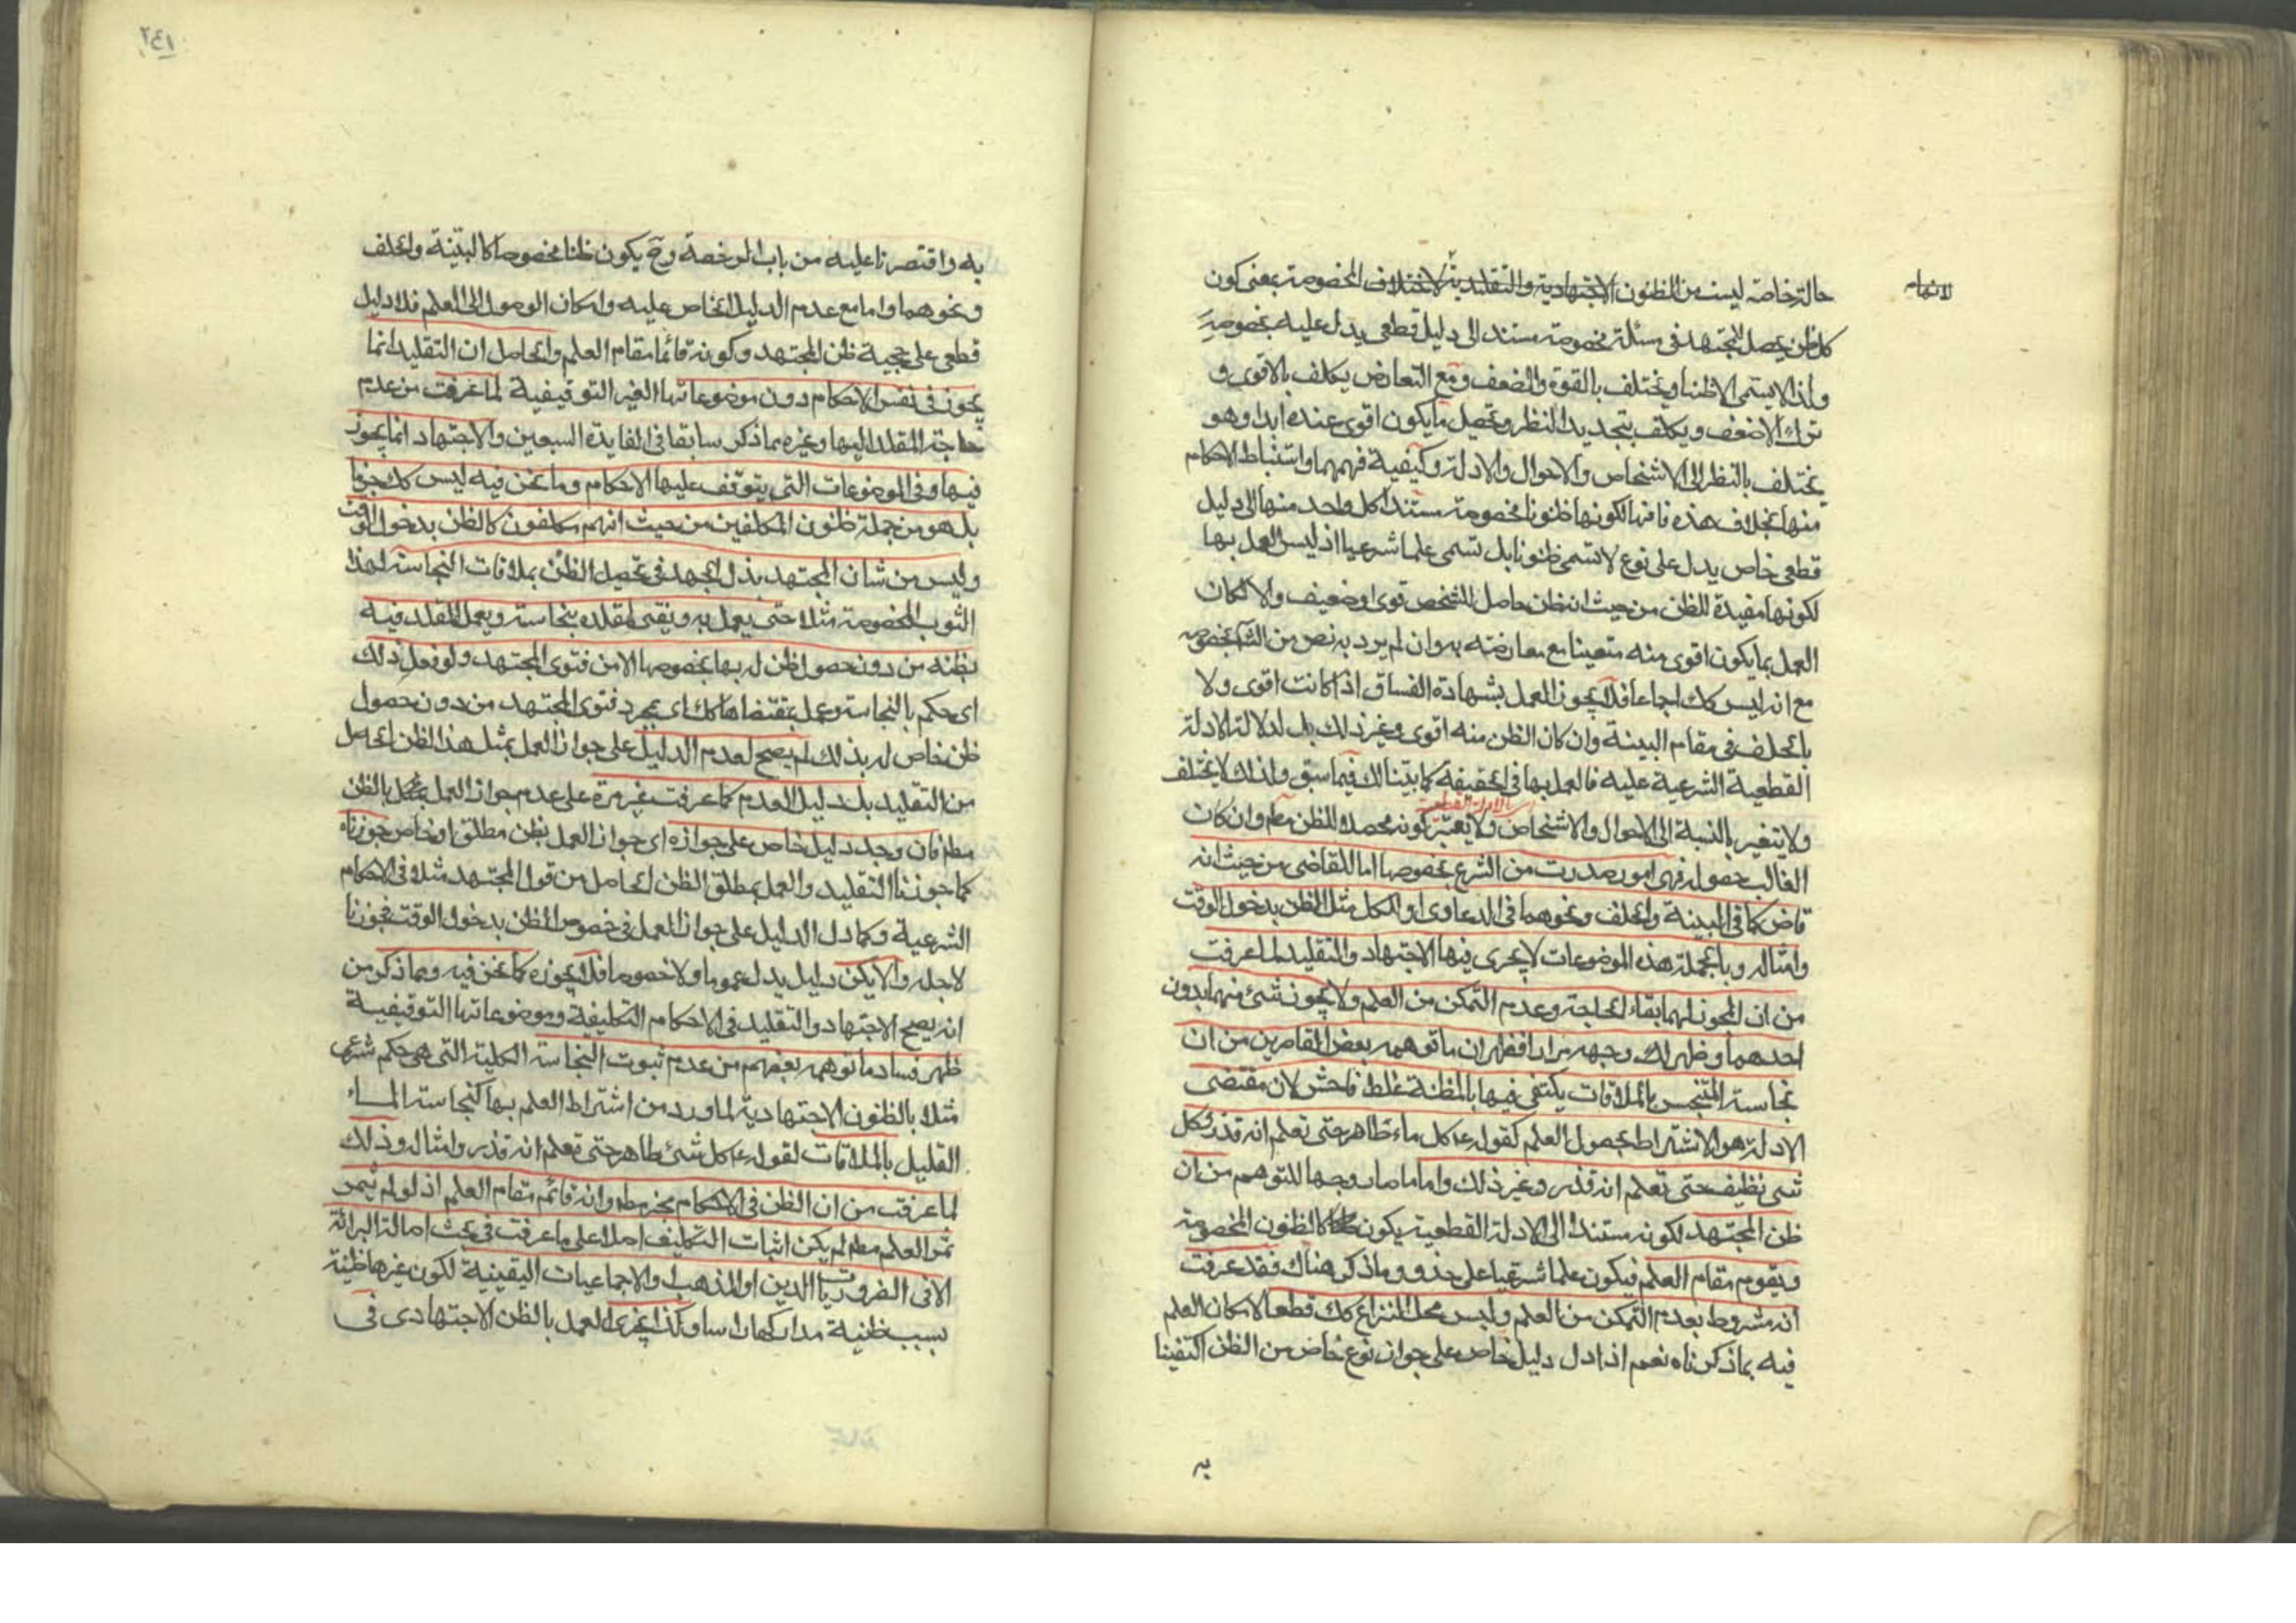 حالة خاصة ليست من الظنون الاجتهادية والتقليدية لاختلاف الخصومة بمعنى كون
لانهما
كل ظن يحصل للمجتهد في مسئلة مخصوصة مستند الى دليل قطعي يدل عليه بخصوصه
ولذا لا يسمى الا ظنا ويختلف بالقوة والضعف ومع التعارض يكلف بالاقوى و
ترك الاضعف ويكلف بتجديد النظر وتحصيل ما يكون اقوى عنده ابدا وهو
يختلف بالنظر الى الاشخاص والاحوال والادلة وكيفية فهمها واستنباط الاحكام
منها بخلاف هذه فانها لكونها ظنونا مخصوصة مستندا كل واحد منها الى دليل
قطعي خاص يدل على نوع لا تسمى ظنونا بل تسمى علما شرعيا اذ ليس العمل بها
لكونها مفيدة للظن من حيث انه ظن حاصل للشخص قوي او ضعيف والا لكان
العمل بما يكون اقوى منه متعينا مع معارضته به وان لم يرد به نص من الش بخصوصه
مع انه ليس كك اجماعا فلا يجوز العمل بشهادة الفساق اذا كانت اقوى ولا
بالحلف في مقام البينة وان كان الظن منه اقوى وغير ذلك بل لدلالة الادلة
القطعية الشرعية عليه فالعمل بها في الحقيقة كما بيناه لك فيما سبق ولذلك لا يختلف
اي بالادلة القطعية
ولا يتغير بالنسبة الى الاحوال والاشخاص ولا يعتبر كونه محصلا للظن مط وان كان
الغالب حصوله فهي امور صدرت من الشرع بخصوصها اما للقاضي من حيث انه
قاض كما في البينة والحلف ونحوهما في الدعاوى او للكل مثل الظن بدخول الوقت
وامثاله وبالجملة هذه الموضوعات لا يجري فيها الاجتهاد والتقليد لما عرفت
من ان المجوز لهما بقاء الحاجة وعدم التمكن من العلم ولا يجوز شئ منهما بدون
احدهما وظهر لك وجهه مرارا فظهر ان ما توهمه بعض القاصرين من ان
نجاسة المتنجس بالملاقات يكتفى فيها بالمظنة غلط فاحش لان مقتضى
الادلة هو الاشتراط بحصول العلم كقوله ع كل ماء طاهر حتى تعلم انه قذر وكل
شئ نظيف حتى تعلم انه قذر وغير ذلك واما ما صار وجها للتوهم من ان
ظن المجتهد لكونه مستندا الى الادلة القطعية يكون كالظنون المخصوصة
ويقوم مقام العلم فيكون علما شرعيا على حذو وما ذكر هناك فقد عرفت
انه مشروط بعدم التمكن من العلم وليس محل النزاع كك قطعا لامكان العلم
فيه بما ذكرناه نعم اذا دل دليل خاص على جواز نوع خاص من الظن اكتفينا
به
٢٤١
به واقتصرنا عليه من باب الرخصة وح يكون ظنا مخصوصا كالبينة والحلف
ونحوهما واما مع عدم الدليل الخاص عليه وامكان الوصول الى العلم فلا دليل
قطعي على حجية ظن المجتهد وكونه قائما مقام العلم والحاصل ان التقليد انما
يجوز في نفس الاحكام دون موضوعاتها الغير التوقيفية لما عرفت من عدم
حاجة المقلد اليها وغيره مما ذكر سابقا في الفايدة السبعين والاجتهاد انما يجوز
فيها وفي الموضوعات التي يتوقف عليها الاحكام وما نحن فيه ليس كك جزما
بل هو من جملة ظنون المكلفين من حيث انهم مكلفون كالظن بدخول الوقت
وليس من شان المجتهد بذل الجهد في تحصيل الظن بملاقات النجاسة لهذا
الثوب المخصوص مثلا حتى يعمل به ويفتي لمقلده بنجاسته ويعمل المقلد فيه
بظنه من دون حصول ظن له بها بخصوصها الا من فتوى المجتهد ولو فعل ذلك
اي حكم بالنجاسة وعمل بمقتضاها كك اي بمجرد فتوى المجتهد من دون حصول
ظن خاص له بذلك لم يصح لعدم الدليل على جواز العمل بمثل هذا الظن الحاصل
من التقليد بل دليل العدم كما عرفت غير مرة على عدم جواز العمل بالظن
مط فان وجد دليل خاص على جوازه اي جواز العمل بظن مطلق او خاص جوزناه
كما جوزنا التقليد والعمل بمطلق الظن الحاصل من قول المجتهد مثلا في الاحكام
الشرعية وكما دل الدليل على جواز العمل في خصوص الظن بدخول الوقت فجوزنا
لاجله والا يكن دليل يدل عموما ولا خصوصا فلا يجوزه كما نحن فيه ومما ذكر من
انه يصح الاجتهاد والتقليد في الاحكام التكليفية وموضوعاتها التوقيفية
ظهر فساد ما توهمه بعضهم من عدم ثبوت النجاسة الكلية التي هي حكم شرعي
مثلا بالظنون الاجتهادية لما ورد من اشتراط العلم بها كنجاسة الماء
القليل بالملاقات لقوله ع كل شئ طاهر حتى تعلم انه قذر وامثاله وذلك
لما عرفت من ان الظن في الاحكام معتبر مط وانه قائم مقام العلم اذ لو لم يثمر
ثمر العلم مط لم يكن اثبات التكليف اصلا على ما عرفت في بحث اصالة البرائة
الا في الضروريات الدين او المذهب والاجماعيات اليقينية لكون غيرها ظنية
بسبب ظنية مداركها راسا وكذا يجري العمل بالظن الاجتهادي في